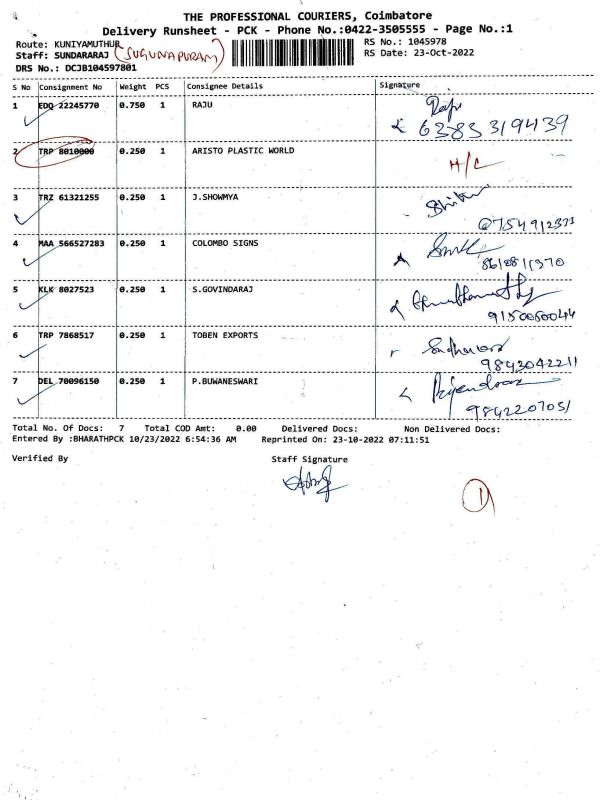 THE PROFESSIONAL COURIERS, Coimbatore
Delivery Runsheet - PCK - Phone No.:0422-3505555 - Page No.:1
Route: KUNIYAMUTHUR (SUGUNAPURAM)
RS No.: 1045978
Staff: SUNDARARAJ
RS Date: 23-Oct-2022
DRS No.: DCJB104597801
S No Consignment No Weight PCS Consignee Details Signature
1 EDQ 22245770 0.750 1 RAJU Raju
6383319439
2 TRP 8010000 0.250 1 ARISTO PLASTIC WORLD H/C
3 TRZ 61321255 0.250 1 J.SHOWMYA
4 MAA 566527283 0.250 1 COLOMBO SIGNS
5 KLK 8027523 0.250 1 S.GOVINDARAJ
6 TRP 7868517 0.250 1 TOBEN EXPORTS
9843042211
7 DEL 70096150 0.250 1 P.BUWANESWARI
9842207051
Total No. Of Docs: 7 Total COD Amt: 0.00 Delivered Docs: Non Delivered Docs:
Entered By :BHARATHPCK 10/23/2022 6:54:36 AM Reprinted On: 23-10-2022 07:11:51
Verified By Staff Signature